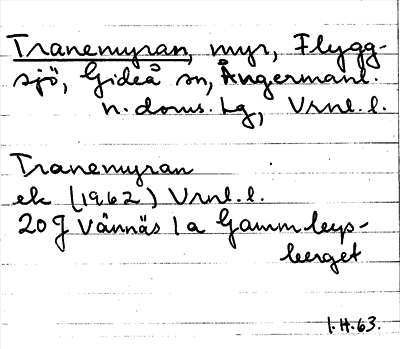 Tranemyran, myr, Flygg-
sjö, Gideå sn, Ångermanl.
n. doms. lg, Vrnl. l.
Tranemyran
ek (1962) Vrnl. l.
20 J Vännäs 1 a Gammleps-
berget
1.H.63.